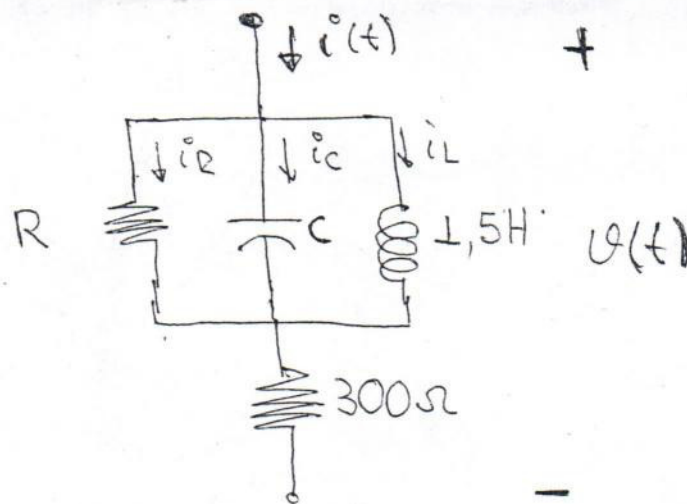 i(t)
+
iR
iC
iL
R
C
1,5H
v(t)
300Ω
-